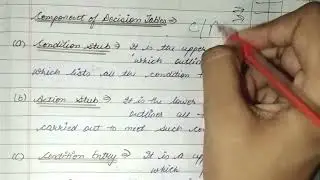 Component of Decision Tables →
(a) Condition Stub → It is the upper
which outline
which lists all the condition to
(b) Action Stub → It is the lower
outlines all t
carried out to meet such con
(c) Condition Entry → It is a upp
which